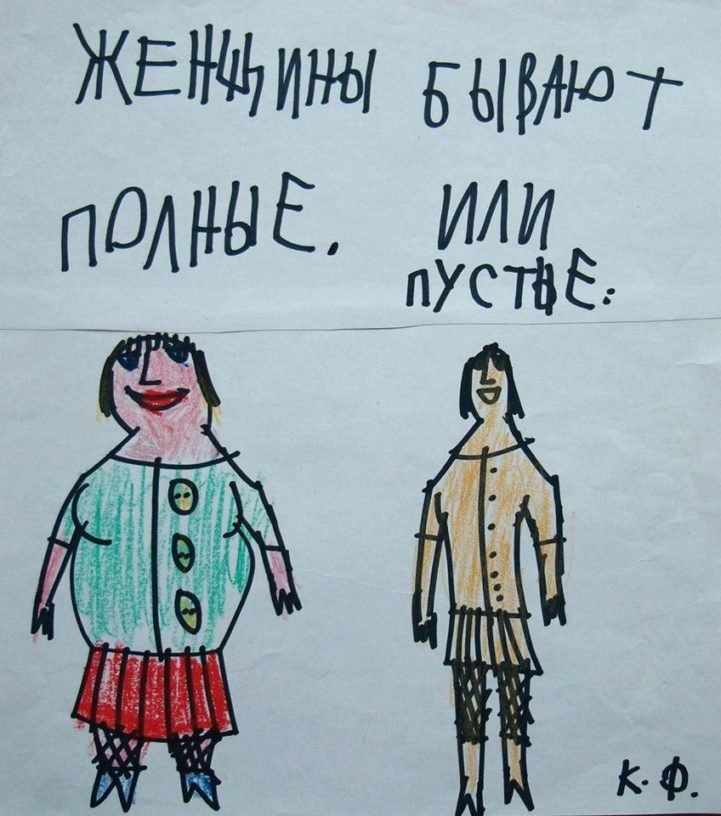 ЖЕНЩИНЫ БЫВАЮТ
ПОЛНЫЕ. ИЛИ
ПУСТЫЕ:
К. Ф.